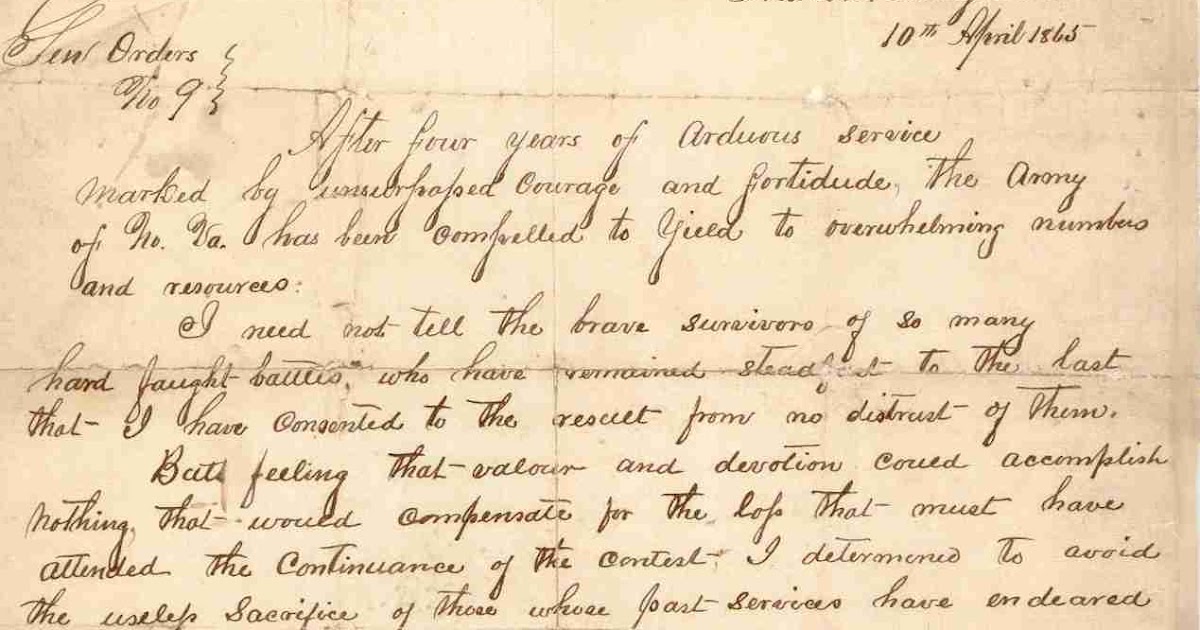 10th April 1865
Gen Orders
No 9
After four years of Arduous service
marked by unsurpassed Courage and fortidude, the Army
of No. Va. has been compelled to Yield to overwhelming numbers
and resources:
I need not tell the brave survivors of so many
hard faught battles, who have remained steadfast to the last
that I have Consented to the result from no distrust of them.
But feeling that valour and devotion could accomplish
Nothing, that would compensate for the loss that must have
attended the Continuance of the contest, I determined to avoid
the useless Sacrifice of those whose past services have endeared